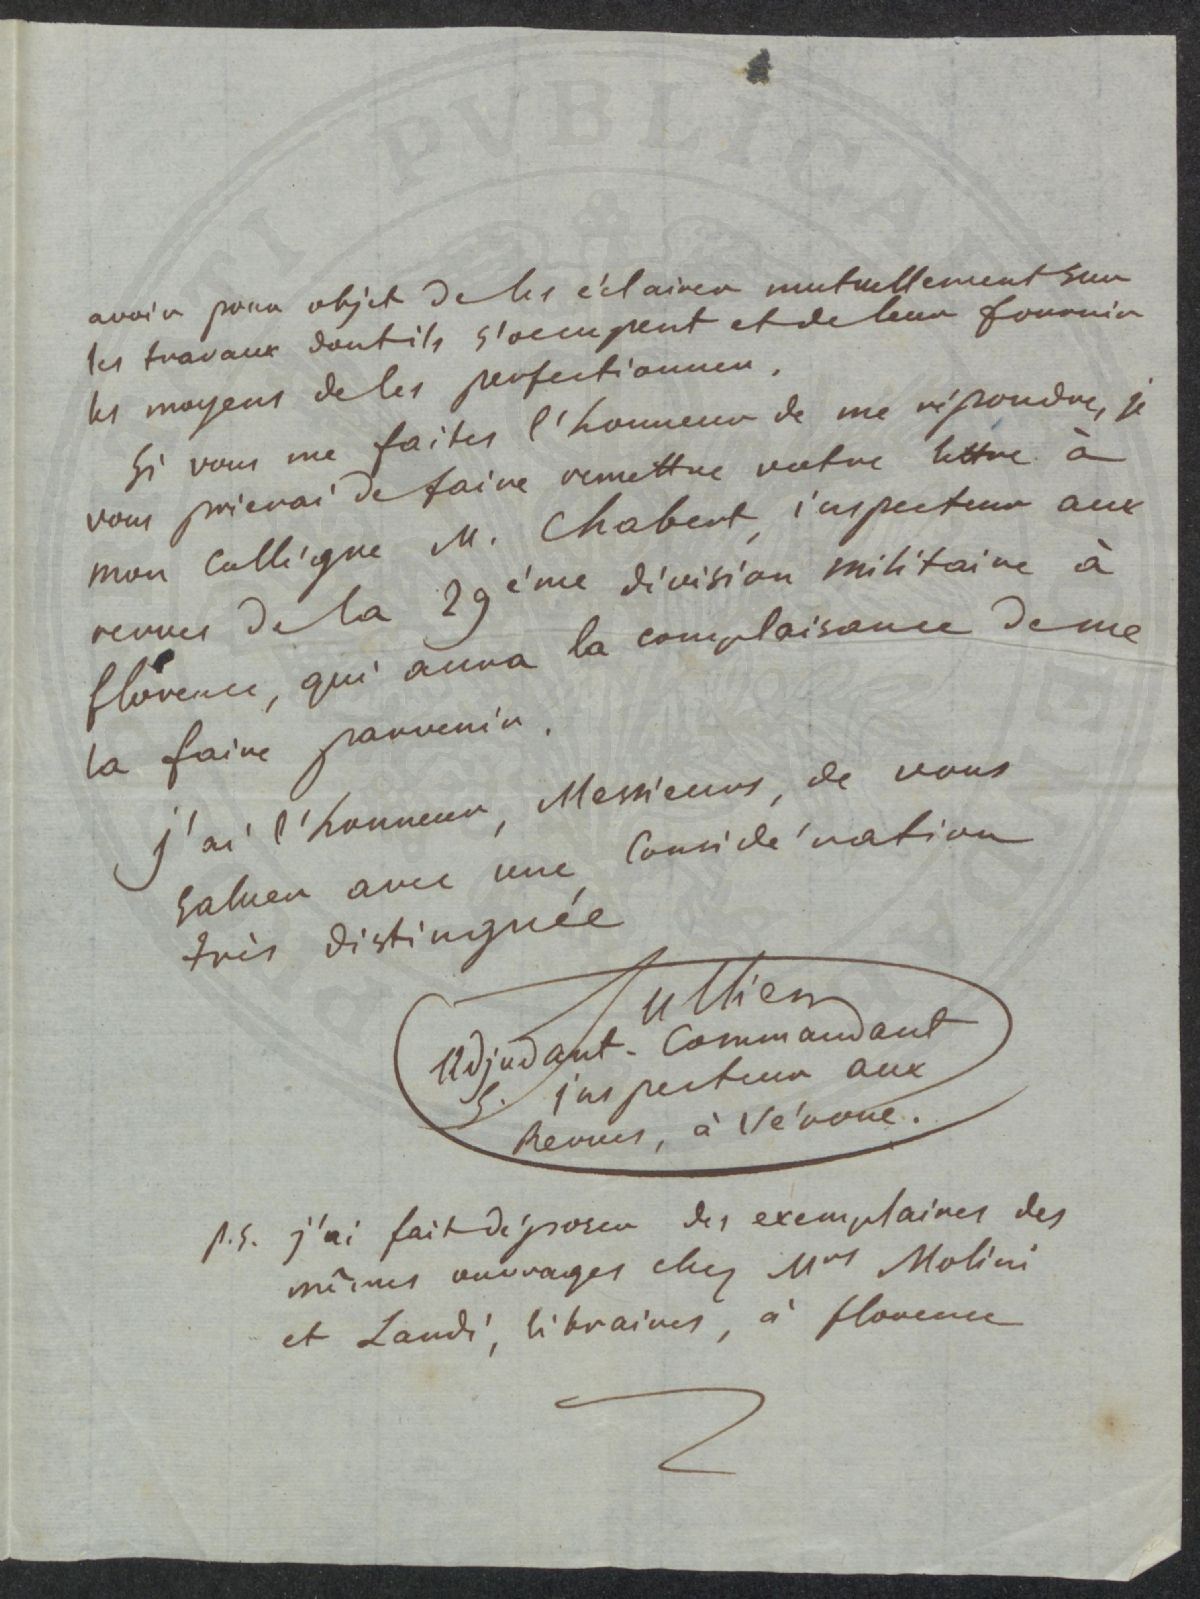 avoir pour objet de les éclairer mutuellement sur
les travaux dont ils s'occupent et de leur fournir
les moyens de les perfectionner.
Si vous me faites l'honneur de me répondre, je
vous prierai de faire remettre votre lettre à
mon collègue M. Chabert, inspecteur aux
revues de la 29éme division militaire à
florence, qui aura la complaisance de me
la faire parvenir.
j'ai l'honneur, Messieurs, de vous
saluer avec une considération
très distinguée
Jullien
Adjudant-Commandant
S. inspecteur aux
Revues, à Vérone.
P.S. j'ai fait déposer des exemplaires des
mêmes ouvrages chez Mrs Molini
et Landi, libraires, à florence